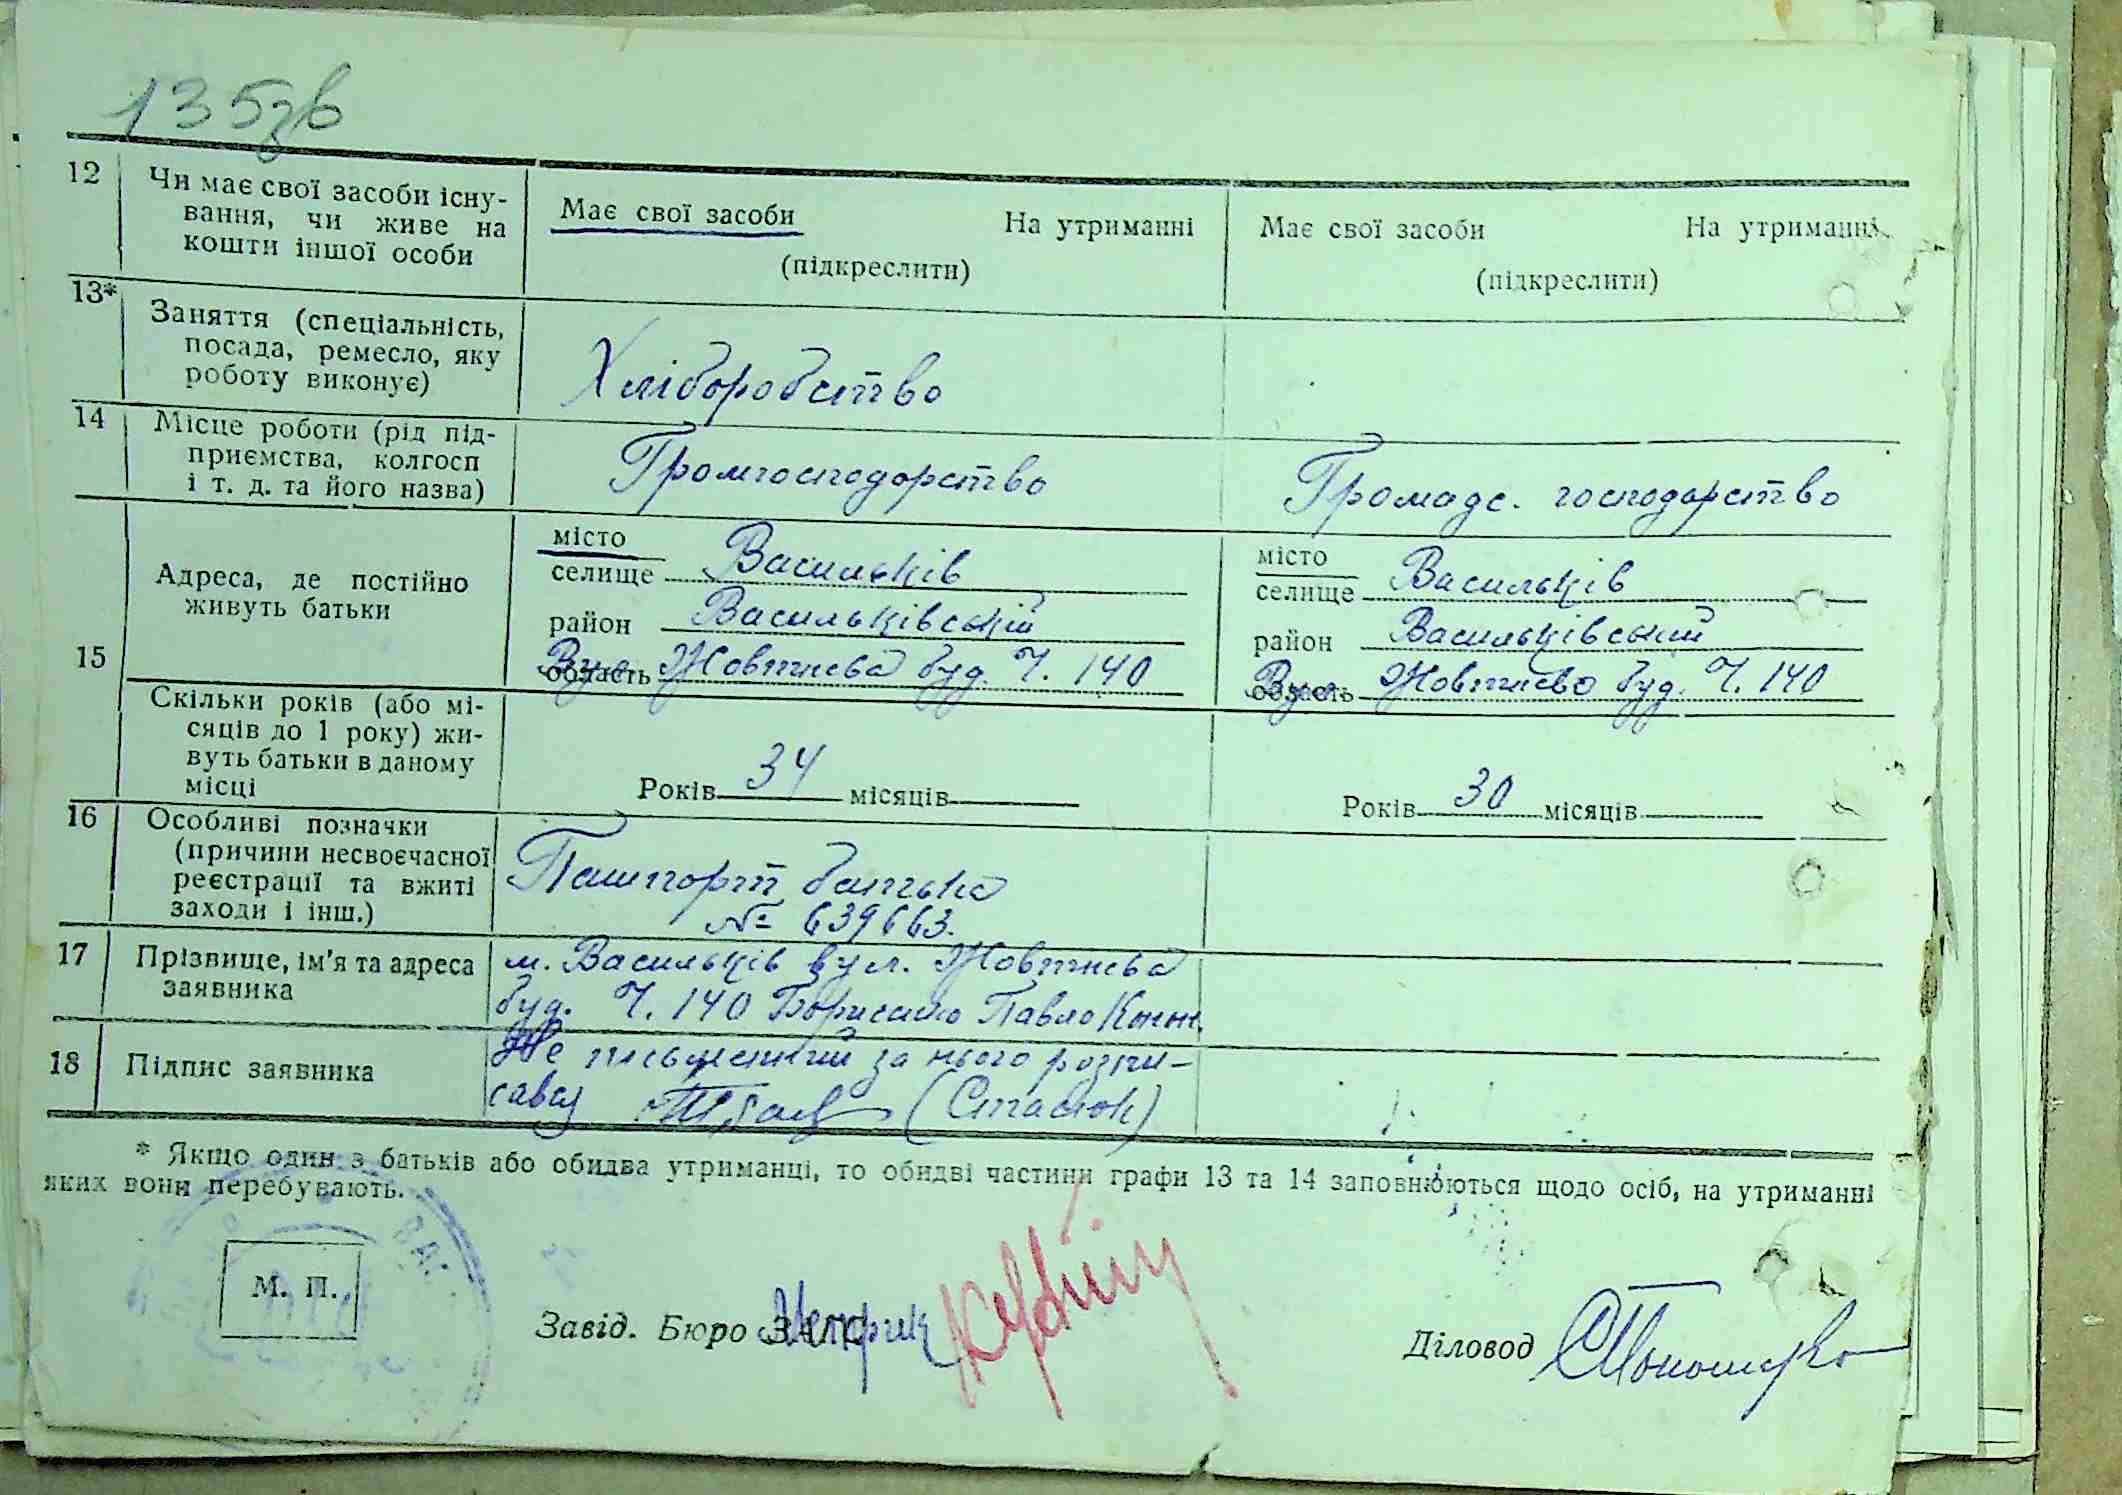 135зв
12 Чи має свої засоби існу-
вання, чи живе на
кошти іншої особи
Має свої засоби На утриманні
(підкреслити)
Має свої засоби На утриманні
(підкреслити)
13* Заняття (спеціальність,
посада, ремесло, яку
роботу виконує)
Хліборобство
14 Місце роботи (рід під-
приємства, колгосп
і т. д. та його назва)
Громгосподарство
Громадс. господарство
15 Адреса, де постійно
живуть батьки
місто
селище Васильків
район Васильківський
область Вул. Жовтнева буд. Ч. 140
місто
селище Васильків
район Васильківський
область Вул. Жовтнева буд. Ч. 140
Скільки років (або мі-
сяців до 1 року) жи-
вуть батьки в даному
місці
Років 34 місяців
Років 30 місяців
16 Особливі позначки
(причини несвоєчасної
реєстрації та вжиті
заходи і інш.)
Пашпорт батька
№ 639663.
17 Прізвище, ім'я та адреса
заявника
м. Васильків вул. Жовтнева
буд. Ч. 140 Борисенко Павло
18 Підпис заявника
Не письменний за нього розпи-
савсь (Стасюк)
* Якщо один з батьків або обидва утриманці, то обидві частини графи 13 та 14 заповнюються щодо осіб, на утриманні
яких вони перебувають.
М. П.
Завід. Бюро ЗАГС
Діловод